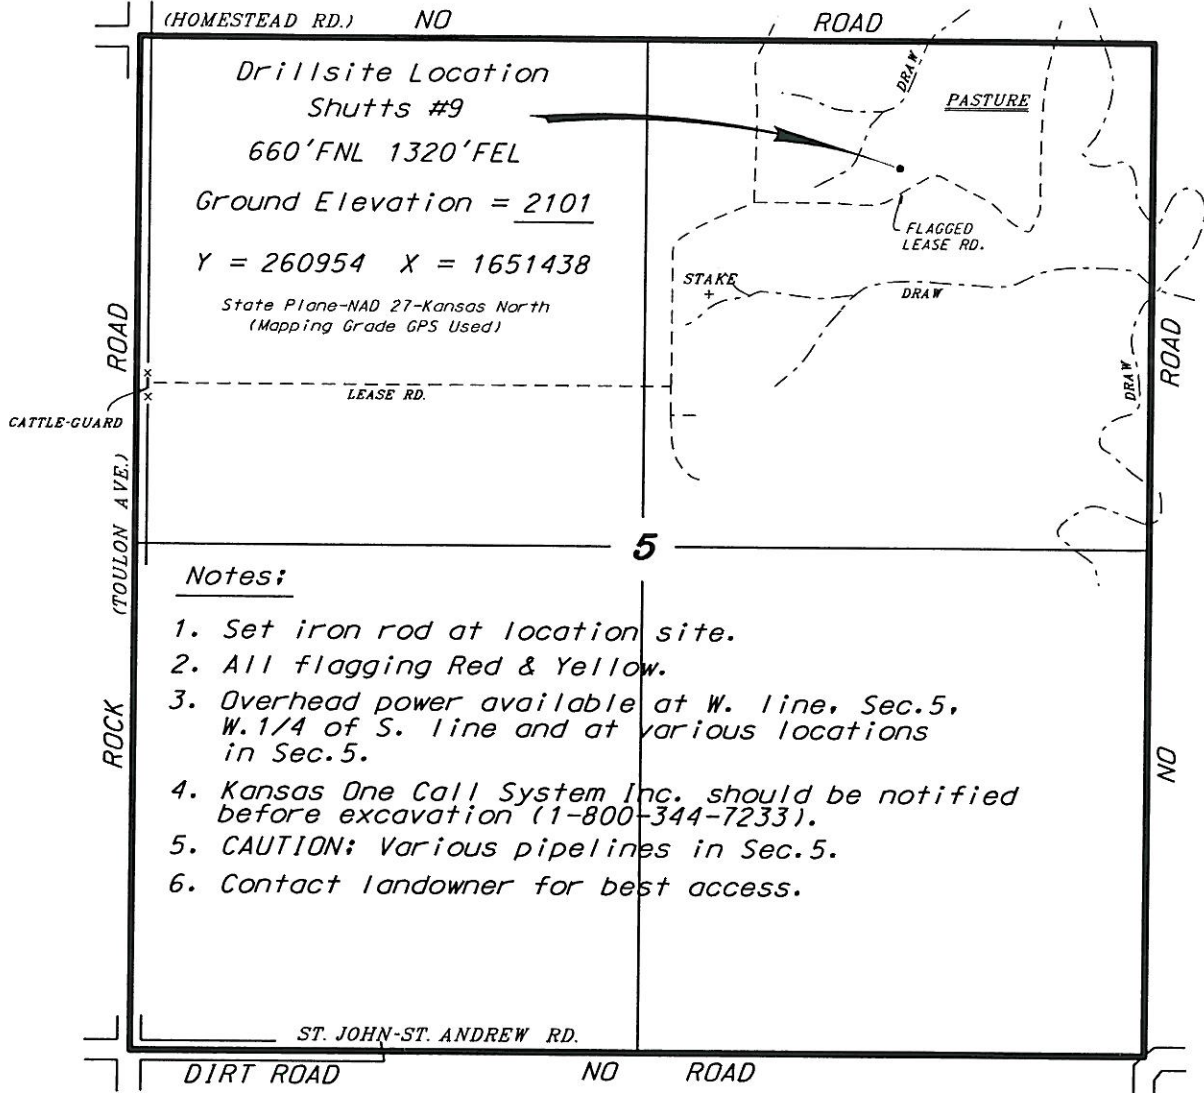 (HOMESTEAD RD.) NO ROAD
Drillsite Location
Shutts #9
660'FNL 1320'FEL
Ground Elevation = 2101
Y = 260954 X = 1651438
State Plane-NAD 27-Kansas North
(Mapping Grade GPS Used)
DRAW
PASTURE
FLAGGED
LEASE RD.
STAKE
+
DRAW
DRAW
ROAD
ROAD
x
x
LEASE RD.
CATTLE-GUARD
(TOULON AVE.)
5
Notes:
1. Set iron rod at location site.
2. All flagging Red & Yellow.
3. Overhead power available at W. line, Sec.5,
W.1/4 of S. line and at various locations
in Sec.5.
4. Kansas One Call System Inc. should be notified
before excavation (1-800-344-7233).
5. CAUTION: Various pipelines in Sec.5.
6. Contact landowner for best access.
ROCK
NO
ST. JOHN-ST. ANDREW RD.
DIRT ROAD NO ROAD